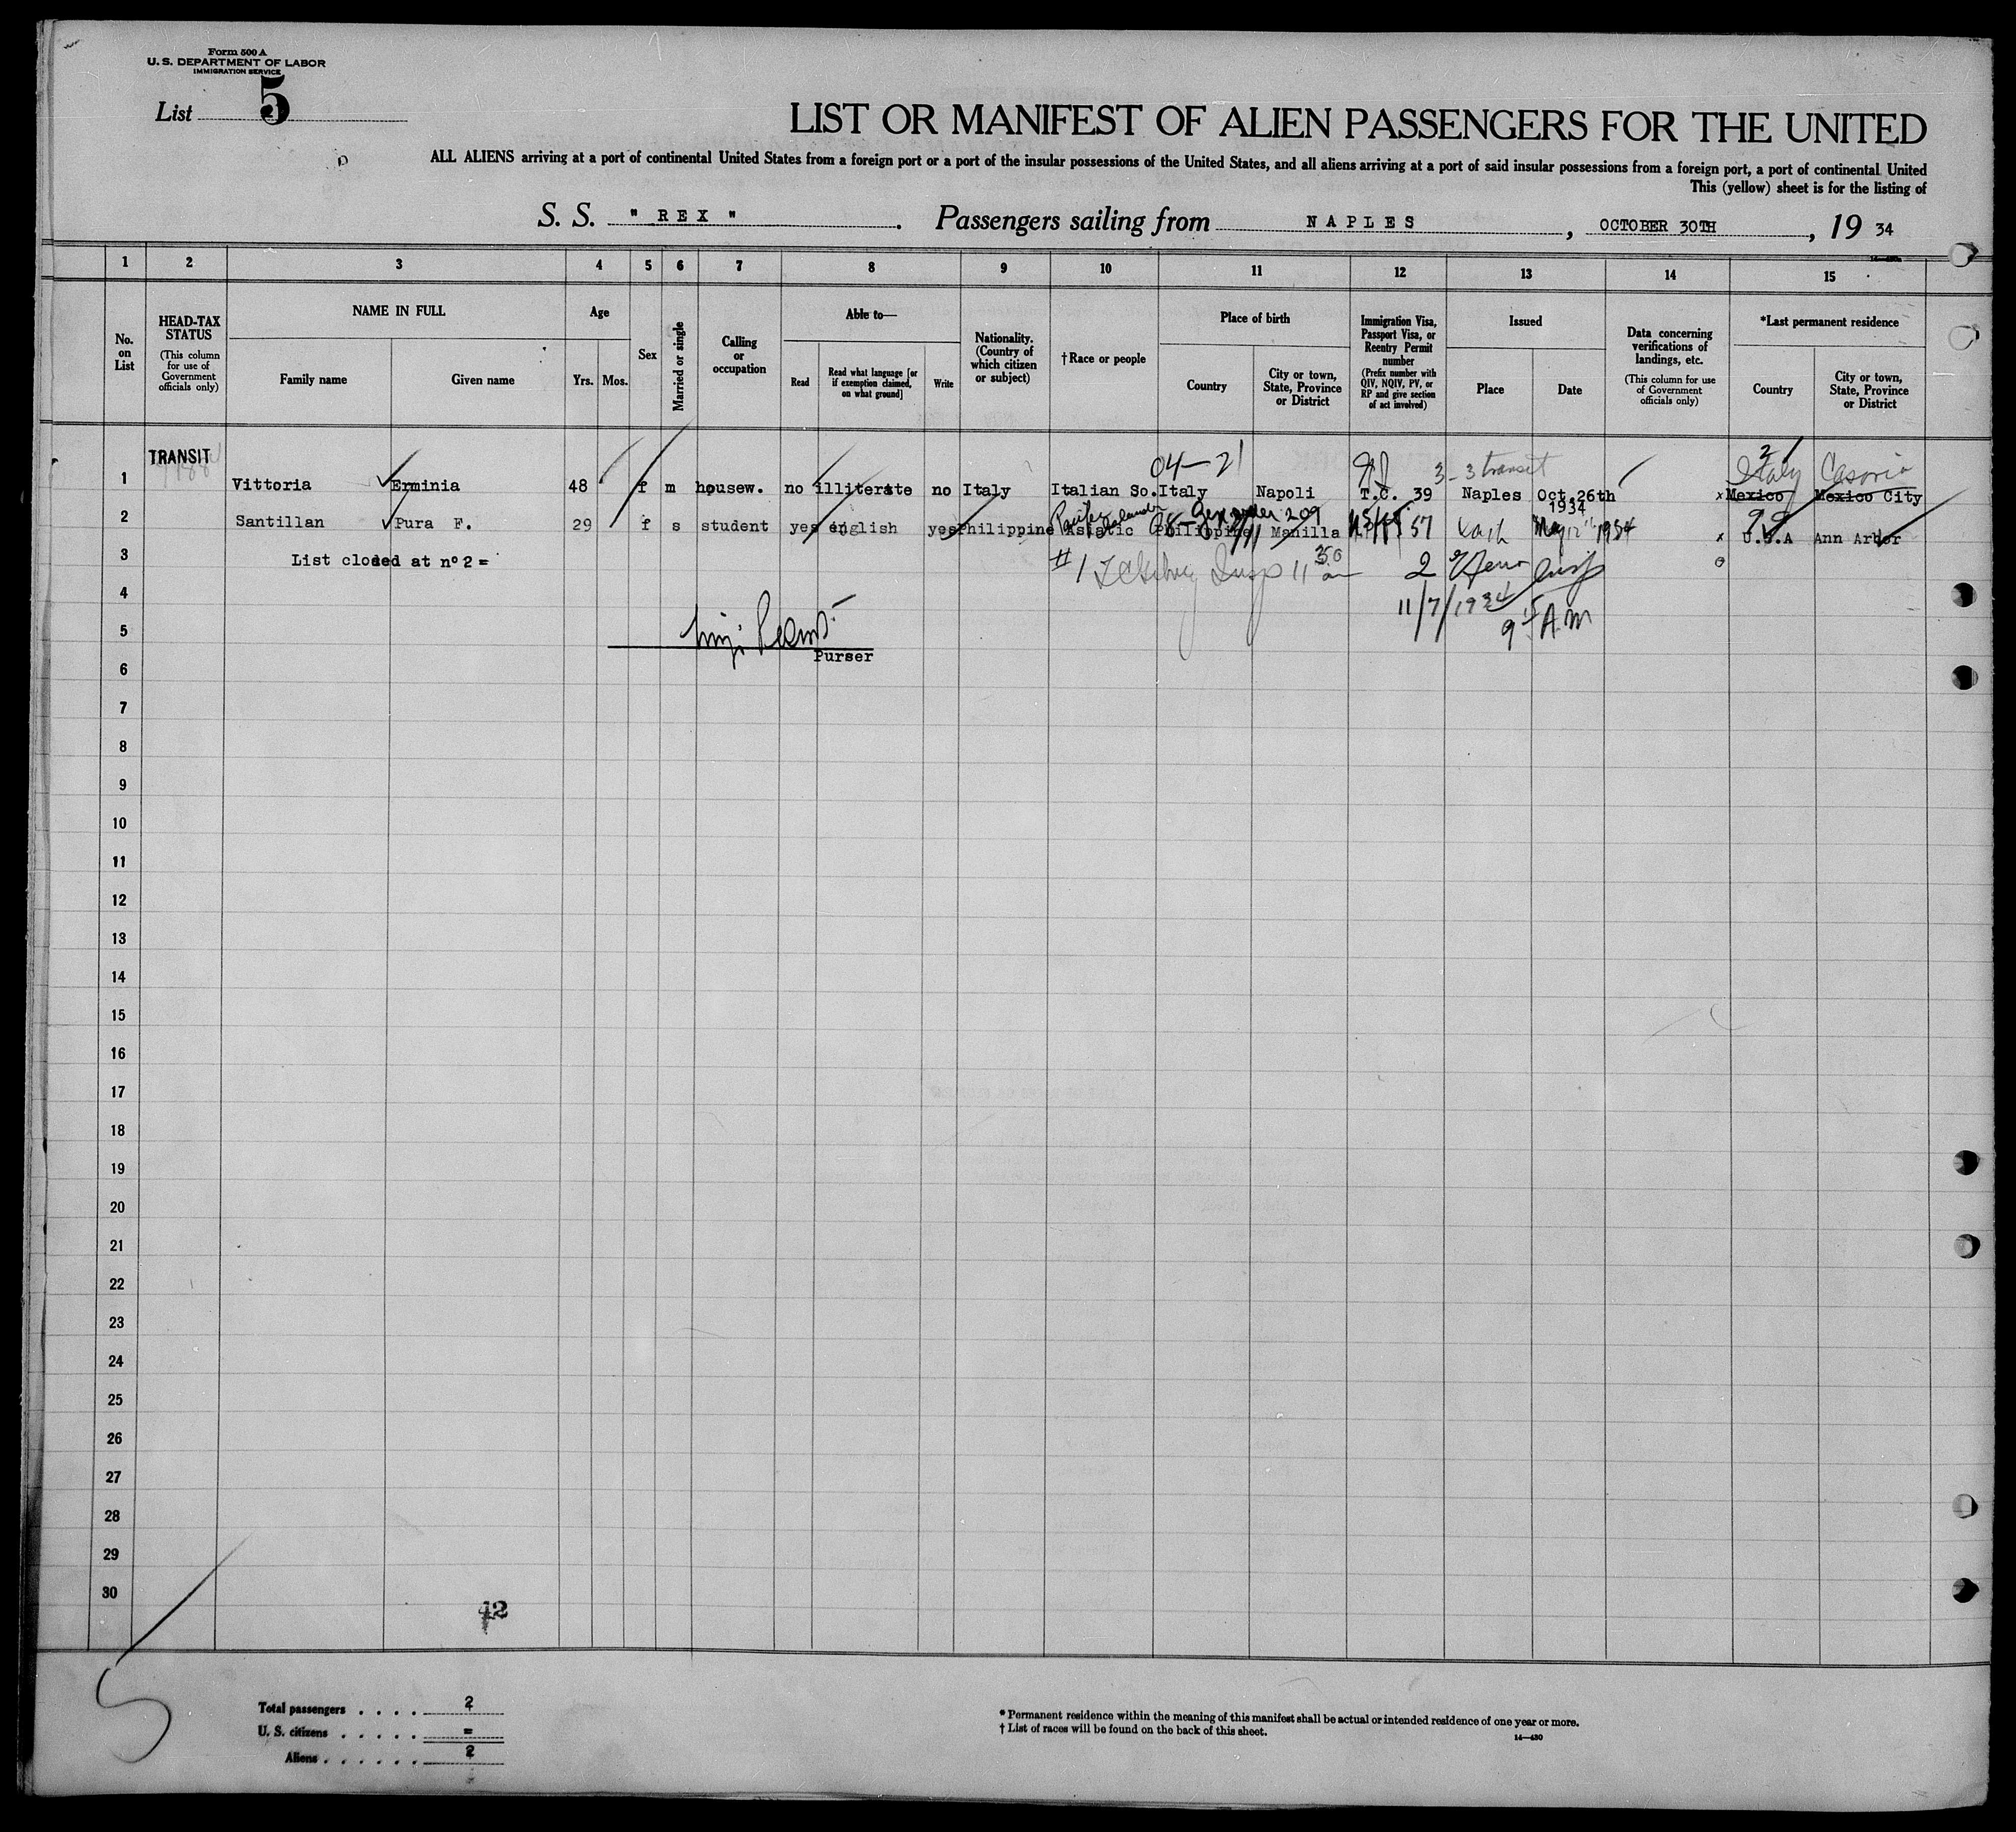 Form 500 A
U. S. DEPARTMENT OF LABOR
IMMIGRATION SERVICE
List 5
LIST OR MANIFEST OF ALIEN PASSENGERS FOR THE UNITED
ALL ALIENS arriving at a port of continental United States from a foreign port or a port of the insular possessions of the United States, and all aliens arriving at a port of said insular possessions from a foreign port, a port of continental United
This (yellow) sheet is for the listing of
S. S. " REX " . Passengers sailing from NAPLES , OCTOBER 30TH , 19 34
1 2 3 4 5 6 7 8 9 10 11 12 13 14 15
No. on List
HEAD-TAX STATUS
(This column for use of Government officials only)
NAME IN FULL
Family name
Given name
Age
Yrs.
Mos.
Sex
Married or single
Calling or occupation
Able to—
Read
Read what language [or if exemption claimed, on what ground]
Write
Nationality. (Country of which citizen or subject)
†Race or people
Place of birth
Country
City or town, State, Province or District
Immigration Visa, Passport Visa, or Reentry Permit number
(Prefix number with QIV, NQIV, PV, or RP and give section of act involved)
Issued
Place
Date
Data concerning verifications of landings, etc.
(This column for use of Government officials only)
*Last permanent residence
Country
City or town, State, Province or District
04—21 3-3 transit Italy Casoria
TRANSIT
1 Vittoria Erminia 48 f m housew. no illiterate no Italy Italian So. Italy Napoli T.C. 39 Naples Oct.26th 1934 x Mexico Mexico City
Pacific Islander
2 Santillan Pura F. 29 f s student yes english yes Philippine Asiatic Philippine Manilla 57 May 12 1934 x U.S.A Ann Arbor
3 List closed at n° 2 =
#1 Insp 11 30 am 2 Insp
4
11/7/1934
9 15 A.M
5
Purser
6
7
8
9
10
11
12
13
14
15
16
17
18
19
20
21
22
23
24
25
26
27
28
29
30
42
5
Total passengers . . . . 2
U. S. citizens . . . . . =
Aliens . . . . . . 2
* Permanent residence within the meaning of this manifest shall be actual or intended residence of one year or more.
† List of races will be found on the back of this sheet.
14—430